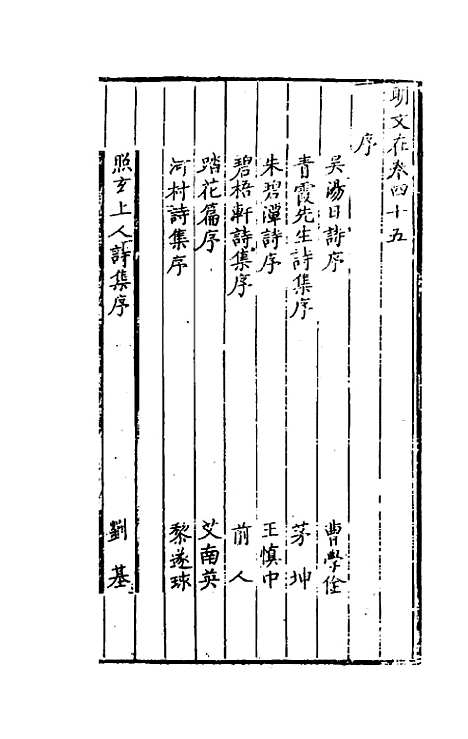 明文在卷四十五
序
吳湯日詩序 曹學佺
青霞先生詩集序 茅坤
朱碧潭詩序 王慎中
碧梧軒詩集序 前人
踏花篇序 艾南英
河村詩集序 黎遂球
照玄上人詩集序 劉基